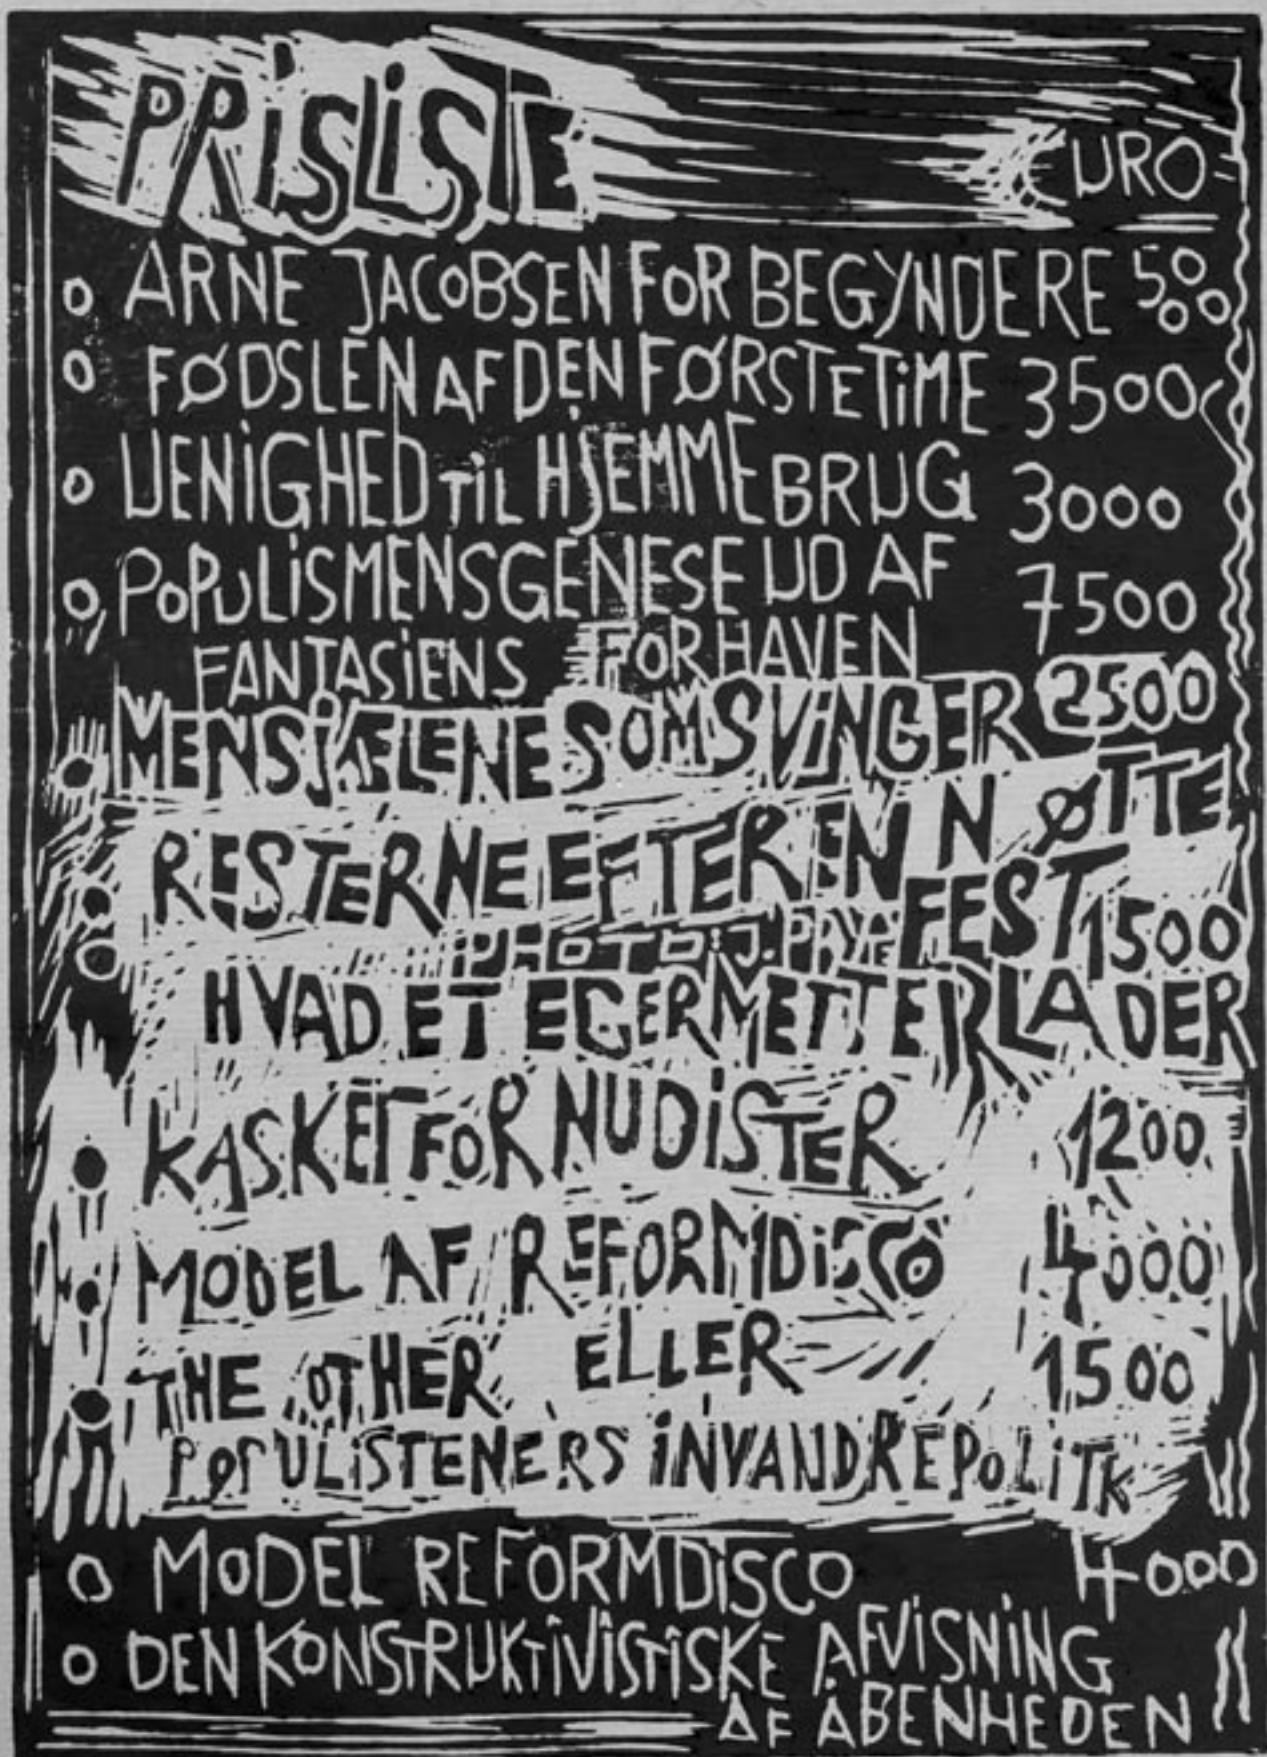 PRISLISTE €URO
ARNE JACOBSEN FOR BEGYNDERE 5000
FØDSLEN AF DEN FØRSTE TIME 3500
UENIGHED TIL HJEMMEBRUG 3000
POPULISMENS GENESE UD AF 7500
FANTASIENS FORHAVEN
MENSJÆLENE SOM SVINGER 2500
RESTERNE EFTER EN NØTTE
FEST 1500
PHOTO: J.
HVAD ET EGERN ETTERLADER
KASKET FOR NUDISTER 1200
MODEL AF REFORMDISCO 4000
THE OTHER ELLER 1500
POPULISTENERS INVANDREPOLITK
MODEL REFORMDISCO 4000
DEN KONSTRUKTIVISTISKE AFVISNING
AF ÅBENHEDEN